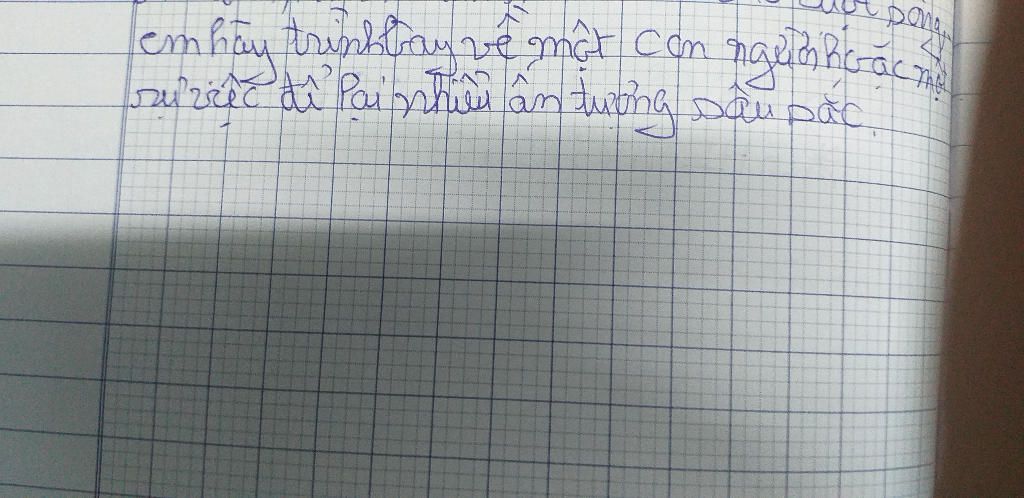 cuộc sống,
em hãy trình bày về một con người hoặc một
sự việc để lại nhiều ấn tượng sâu sắc.